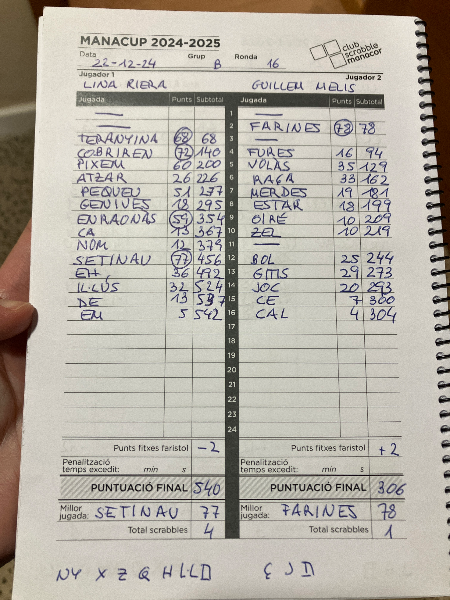 MANACUP 2024-2025
club scrabble manacor
Data 22-12-24 Grup B Ronda 16
Jugador 1 Jugador 2
LINA RIERA GUILLEM MELIS
Jugada Punts Subtotal Jugada Punts Subtotal
— 1
— 2 FARINES 78 78
TERANYINA 68 68 3 —
COBRIREN 72 140 4 FURES 16 94
PIXEM 60 200 5 VOLAS 35 129
ATZAR 26 226 6 RAGA 33 162
PEQUEU 51 277 7 MERDES 19 181
GENIVES 18 295 8 ESTAR 18 199
ENRAONAS 59 354 9 OIRÉ 10 209
CA 13 367 10 ZEL 10 219
NOM 12 379 11 —
SETINAU 77 456 12 BOL 25 244
EH 36 492 13 GMS 29 273
IL·LÚS 32 524 14 JOC 20 293
DE 13 537 15 CE 7 300
EM 5 542 16 CAL 4 304
17
18
19
20
21
22
23
24
Punts fitxes faristol -2 Punts fitxes faristol +2
Penalització temps excedit: min s Penalització temps excedit: min s
PUNTUACIÓ FINAL 540 PUNTUACIÓ FINAL 306
Millor jugada: SETINAU 77 Millor jugada: FARINES 78
Total scrabbles 4 Total scrabbles 1
NY X Z Q H LL D Ç J D